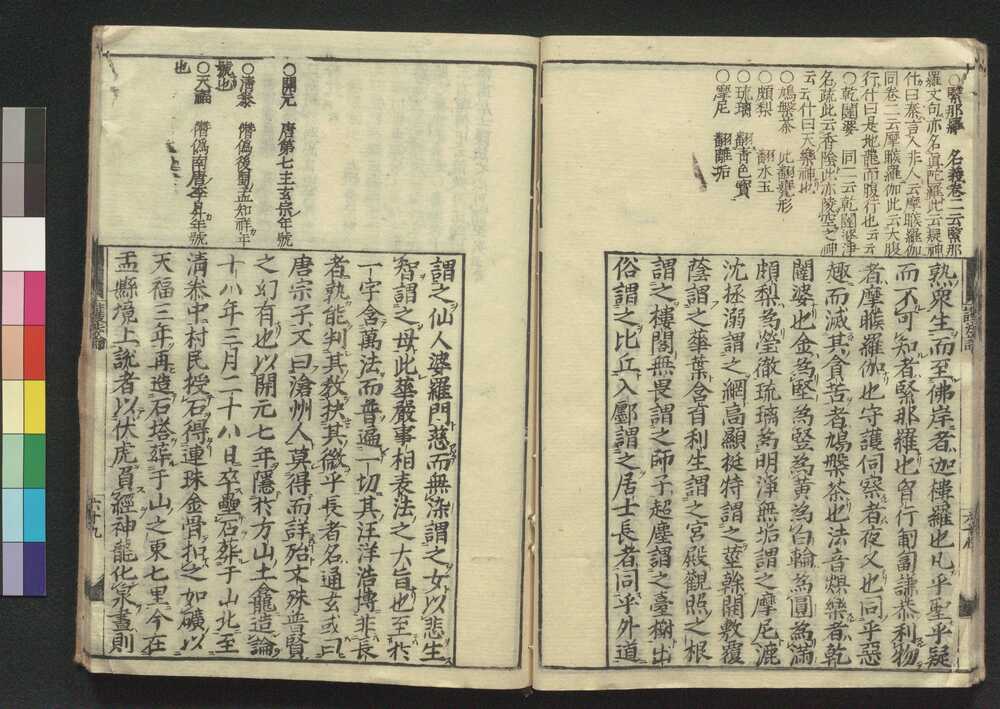 ○緊那羅 名義卷二云緊那
羅文句亦名眞陀羅此云疑神
什曰秦言人非人云摩睺羅伽
同卷二云摩睺羅伽此云大腹
行什曰是地龍而腹行也云云
○乾闥婆 同二云乾闥婆淨
名疏此云香陰此亦陵空之神
云云什曰天樂神也
○鳩槃茶 此翻甕形
○頗梨 翻水玉
○琉璃 翻青色寶
○摩尼 翻離垢
熟衆生而至佛岸者迦樓羅也凡乎聖乎疑
而不可知者緊那羅也胷行匍匐謙恭利物
者摩睺羅伽也守護伺察者夜叉也同乎惡
趣而滅其貪苦者鳩槃茶也法音娛樂者乾
闥婆也金爲堅爲竪爲黄爲白輪爲圓爲滿
頗梨爲瑩徹琉璃爲明淨無垢謂之摩尼漉
沈拯溺謂之網高顯挺特謂之莖幹開敷覆
蔭謂之華葉含育利生謂之宮殿觀照之根
謂之樓閣無畏謂之師子超塵謂之臺榭出
俗謂之比丘入鄽謂之居士長者同乎外道
○開元 唐第七主玄宗年號
○清泰 僭僞後蜀孟知祥年
號也
○天福 僭僞南唐李昪年號
也
謂之仙人婆羅門慈而無染謂之女以悲生
智謂之母此華嚴事相表法之大旨也至於
一字含萬法而普遍一切其汪洋浩博非長
者孰能判其教抉其微乎長者名通玄或曰
唐宗子又曰滄州人莫得而詳殆文殊普賢
之幻有也以開元七年隱於方山土龕造論
十八年三月二十八日卒壘石葬于山北至
清泰中村民授石得連珠金骨扣之如礦以
天福三年再造石塔葬于山之東七里今在
盂縣境上説者以伏虎負經神龍化泉晝則
六十九